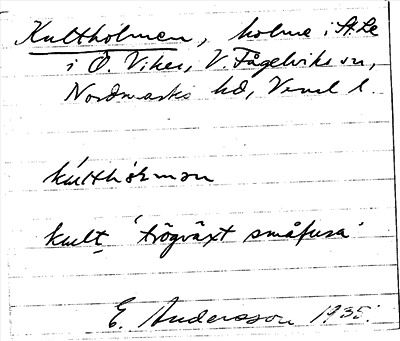 Kultholmen, holme i St. Le
i Ö. Viker, V. Fågelviks sn,
Nordmarks hd, Verml l.
kúlthòlmən
kult 'trögväxt småfura'
E. Andersson 1935.